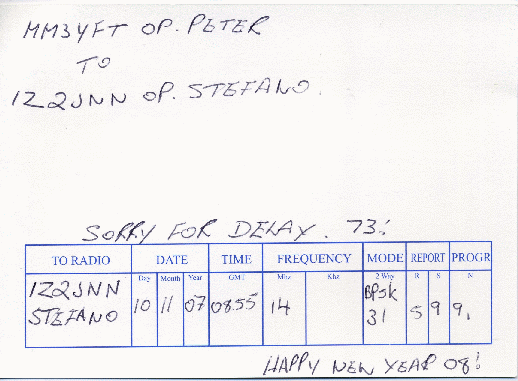 MM3YFT OP. PETER
TO
IZ2JNN OP. STEFANO.
SORRY FOR DELAY. 73!
TO RADIO DATE TIME FREQUENCY MODE REPORT PROGR
Day Month Year GMT Mhz Khz 2 Way R S N
IZ2JNN STEFANO 10 11 07 08.55 14 BPSK 31 5 9 9.
HAPPY NEW YEAR 08!